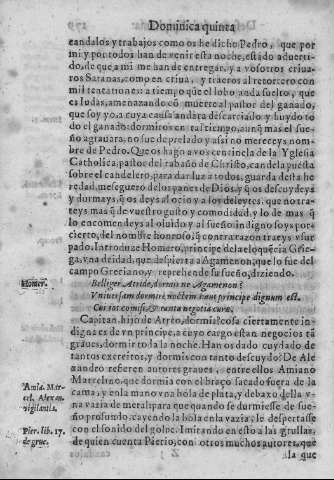 Dominica quinta
candalos y trabajos como os he dicho Pedro, que por
mi y por todos han de venir esta noche, estado aduerti-
do, de que a mi me han de entregar, y a vosotros criua-
ros Satanas, comp en criua, y traeros al retortero con
mil tentaciones: a tiempo q̃ el lobo anda suelto, que
es Iudas, amenazando cõ muerte al pastor del ganado,
que soy yo, a cuya causa andara descarriado y huydo to
do el ganado: dormiros en tal tiempo, aunq̃ mas el sue-
ño agrauara, no fue de prelado, y assi no mereceys nom-
bre de Pedro. Que os hago a vos centinela de la Yglesia
Catholica, pastor del rabaño de Christo, candela puesta
sobre el candelero, para dar luz a todos, guarda desta he
redad, mesguero de los panes de Dios, y q̃ os descuydeys
y durmays, q̃ os deys al ocio y a los deleytes, que no tra-
teys mas q̃ de vuestro gusto y comodidad, y lo de mas q̃
os encomendeys al oluido y al sueño indigno soys por-
cierto, del nombre honroso, q̃ contra razon traeys vsur
pado. Introduze Homero, principe de la eloquẽcia Grie-
ga, vna deidad, que despierta a Agamenon, que lo fue del
campo Greciano, y reprehende su sueño, diziendo.
Homer.
Belliger Atride, dormis ne Agamenon?
Vniuersam dormire noctem haud principe dignum est.
Cui tot comissa, & tanta negotia curæ.
Capitan hijo de Atreo, dormis? cosa ciertamente in-
digna es de vn principe, a cuyo cargo estan negocios tã
graues, dormir toda la noche. Han os dado cuydado de
tantos exercitos, y dormis con tanto descuydo? De Ale
xandro refieren autores graues, entre ellos Amiano
Marcelino, que dormia con el braço sacado fuera de la
cama, y en la mano vna bola de plata, y debaxo della v-
na vazia de metal: para que quando se durmiesse de sue-
ño profundo, cayendo la bola en la vazia, le despertasse
con el sonido del golpe. Imitando en esto a las grullas,
de quien cuenta Pierio, con otros muchos autores, que
Amia. Mar-
cel. Alex. in
vigilantis.
Pier. lib. 17.
de grue.
a la que